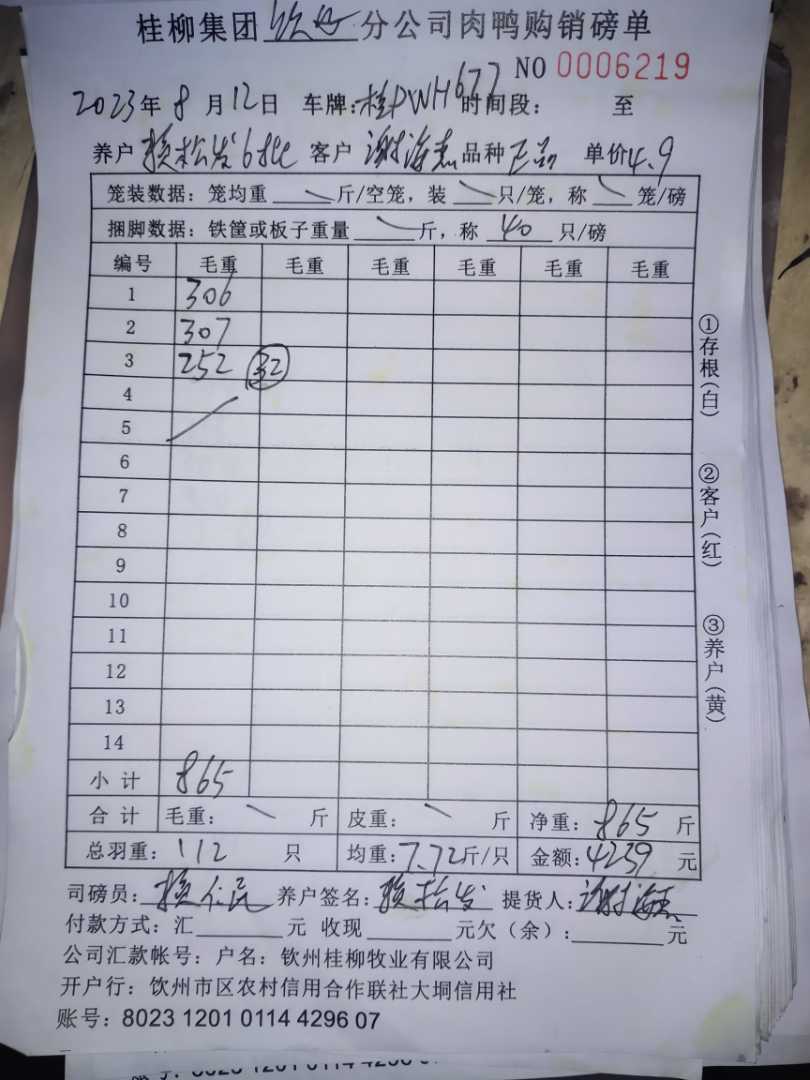 桂柳集团钦州分公司肉鸭购销磅单
NO 0006219
2023年8月12日 车牌:桂PWH677时间段: 至
养户 赖松发6批 客户 谢海杰 品种 正品 单价4.9
笼装数据: 笼均重 斤/空笼, 装 只/笼, 称 笼/磅
捆脚数据: 铁筐或板子重量 斤, 称 40 只/磅
编号 毛重 毛重 毛重 毛重 毛重 毛重
1 306
2 307
3 252 32
4
5
6
7
8
9
10
11
12
13
14
小计 865
合计 毛重: 斤 皮重: 斤 净重: 865 斤
总羽重: 112 只 均重: 7.72斤/只 金额: 4239 元
司磅员: 养户签名: 赖松发 提货人: 谢海杰
付款方式: 汇 元 收现 元欠(余): 元
公司汇款帐号: 户名: 钦州桂柳牧业有限公司
开户行: 饮州市区农村信用合作联社大垌信用社
账号: 8023 1201 0114 4296 07
①存根(白)
②客户(红)
③养户(黄)